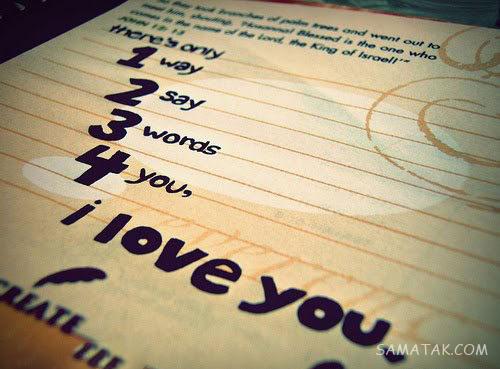 they took branches of palm trees and went out to
shouting, "Hosanna! Blessed is the one who
in the name of the Lord, the King of Israel!"
there's only
1 way
2 say
3 words
4 you,
i love you.
CREATE
SAMATAK.COM